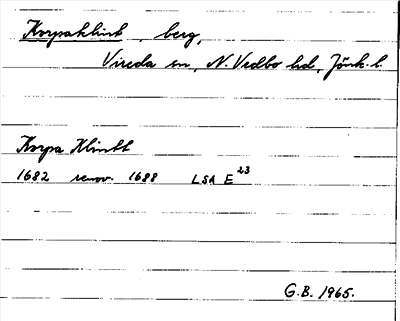 Korpaklint, berg,
Vireda sn, N. Vedbo hd, Jönk. l.
Korpa Klintt
1682 renov. 1688 LSA E 23
G.B. 1965.